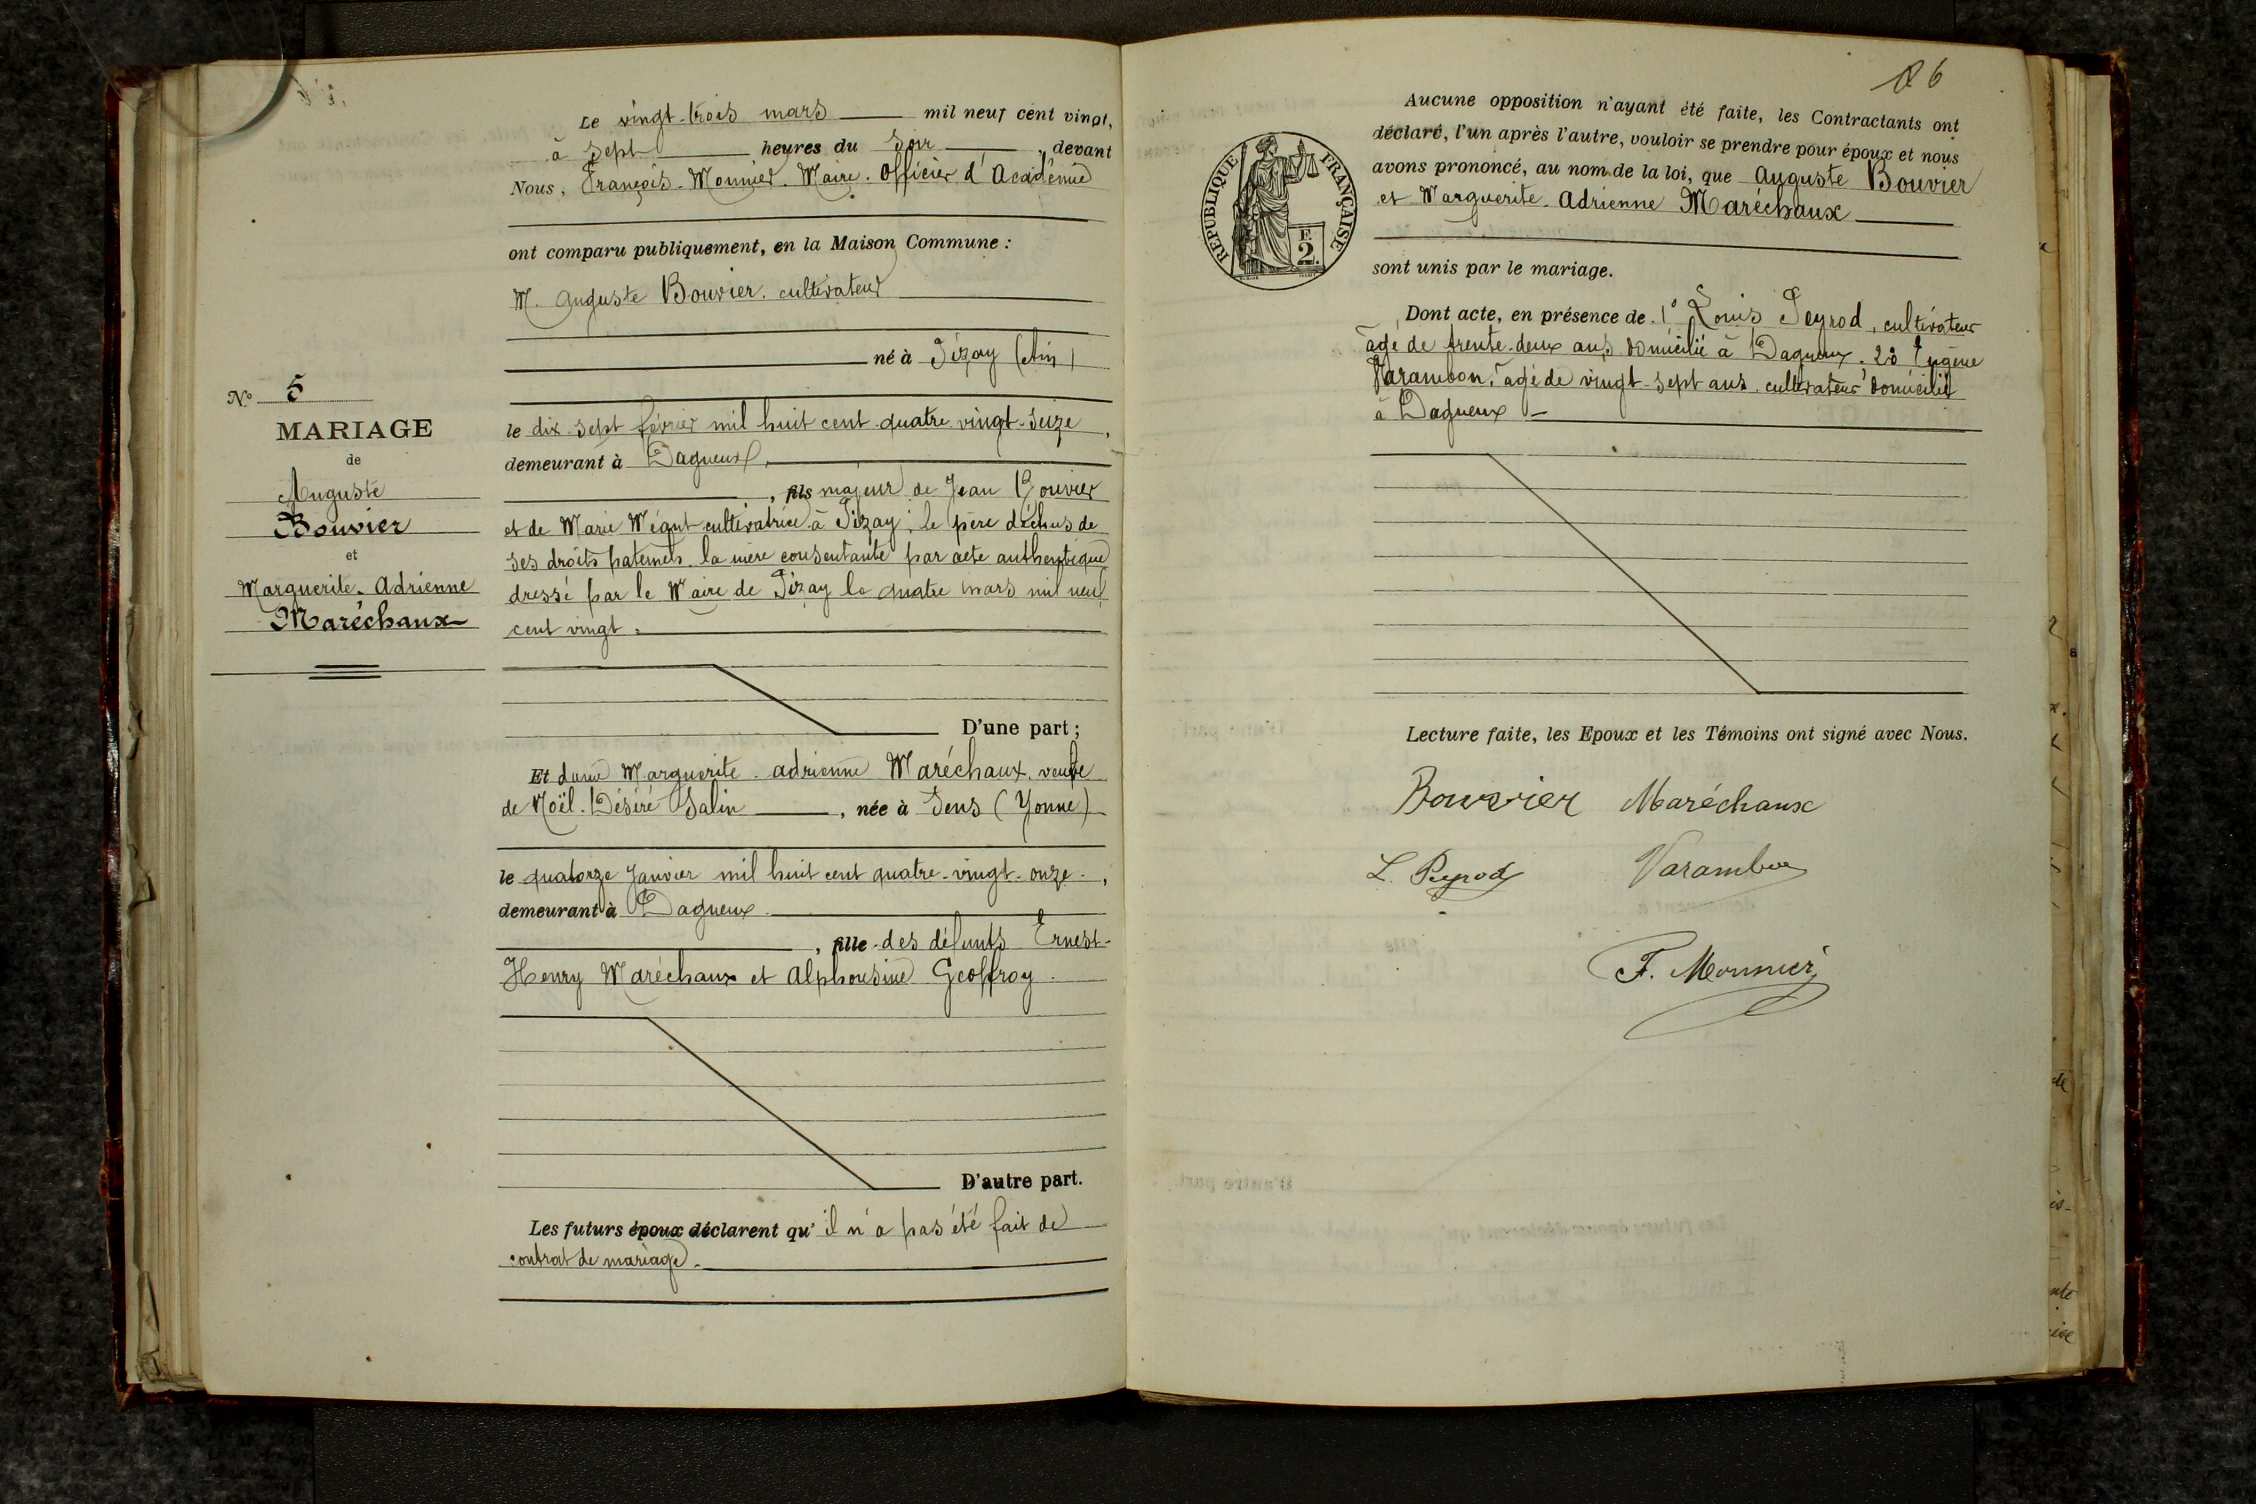 Le vingt-trois mars mil neuf cent vingt,
à sept heures du soir, devant
Nous, François Monnier. Maire. Officier d'Académie
ont comparu publiquement, en la Maison Commune :
M. Auguste Bouvier. cultivateur
né à Pizay (Ain)
No 5
MARIAGE
de
Auguste
Bouvier
et
Marguerite. Adrienne
Maréchaux
le dix sept février mil huit cent quatre vingt-seize,
demeurant à Dagneux,
, fils majeur de Jean Bouvier
et de Marie Mégut cultivatrice à Pizay ; le père déchus de
ses droits paternels. la mère consentante par acte authentique
dressé par le Maire de Pizay le quatre mars mil neuf
cent vingt.
D'une part ;
Et dame Marguerite. adrienne Maréchaux. veuve
de Noël. Désiré Salin, née à Sens (Yonne)
le quatorze Janvier mil huit cent quatre-vingt-onze,
demeurant à Dagneux
, fille des défunts Ernest-
Henry Maréchaux et Alphonsine Geoffroy
D'autre part.
Les futurs époux déclarent qu'il n'a pas été fait de
contrat de mariage.
6
REPUBLIQUE FRANÇAISE
F.
2.
Aucune opposition n'ayant été faite, les Contractants ont
déclaré, l'un après l'autre, vouloir se prendre pour époux et nous
avons prononcé, au nom de la loi, que Auguste Bouvier
et Marguerite. Adrienne Maréchaux
sont unis par le mariage.
Dont acte, en présence de 1° Louis Peyrod, cultivateur
âgé de trente-deux ans domicilié à Dagneux. 2° Eugène
Varambon, âgé de vingt-sept ans. cultivateur domicilié
à Dagneux
Lecture faite, les Epoux et les Témoins ont signé avec Nous.
Bouvier Maréchaux
L. Peyrod Varambon
F. Monnier